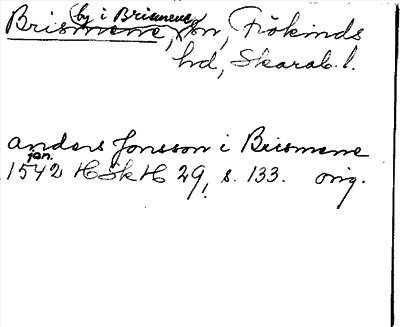 by i Brismene
Brismene, sn, Frökinds
hd, Skarab. l.
Anders Jonsson i Brismene
jan.
1542 HSkH 29, s. 133. orig.